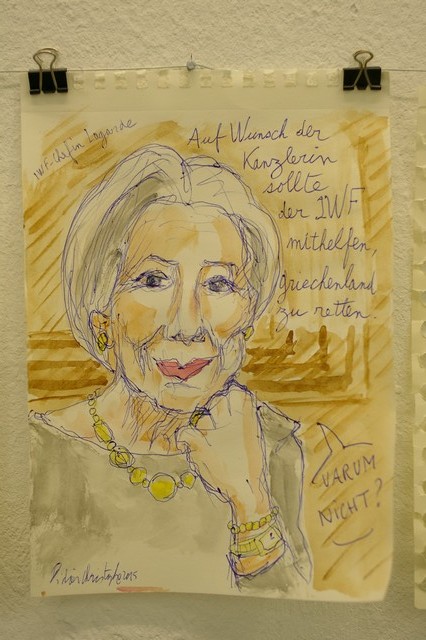 IWF-Chefin Lagarde
Auf Wunsch der
Kanzlerin
sollte
der IWF
mithelfen,
griechenland
zu retten.
WARUM
NICHT?
2015